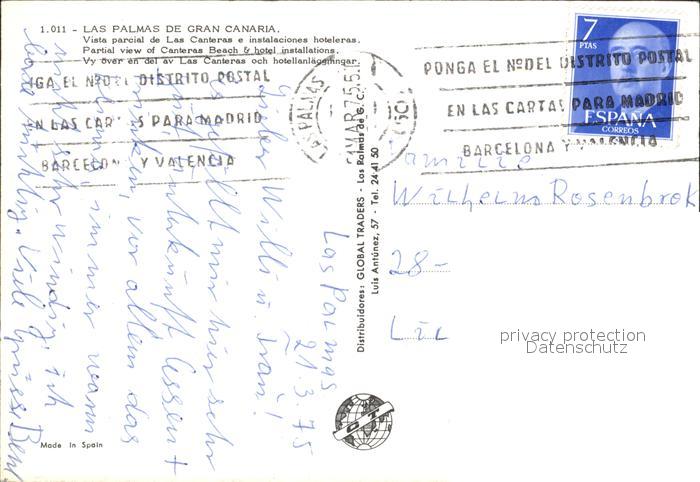 1.011 - LAS PALMAS DE GRAN CANARIA.
Vista parcial de Las Canteras e instalaciones hoteleras.
Partial view of Canteras Beach & hotel installations.
Vy över en del av Las Canteras och hotellanläggningar.
NGA EL NºDEL DISTRITO POSTAL
EN LAS CAR S PARA MADRID
BARCELON Y VALENCIA
LAS PALMAS
MAR 75
PONGA EL NºDEL DISTRITO POSTAL
EN LAS CARTAS PARA MADRID
BARCELONA Y VALENCIA
7
PTAS
ESPAÑA
CORREOS
Las Palmas
21.3.75
Lieber Willi u. Frau!
gefällt mir hier sehr
Unterkunft Essen +
trinken, vor allem das
immer warm
sehr windig, ich
Viele Grüsse
Distribuidores: GLOBAL TRADERS - Las Palmas de G. C.
Luis Antúnez, 57 - Tel. 24 41 50
Familie
Wilhelm Rosenbrok
28-
privacy protection
Datenschutz
Made in Spain